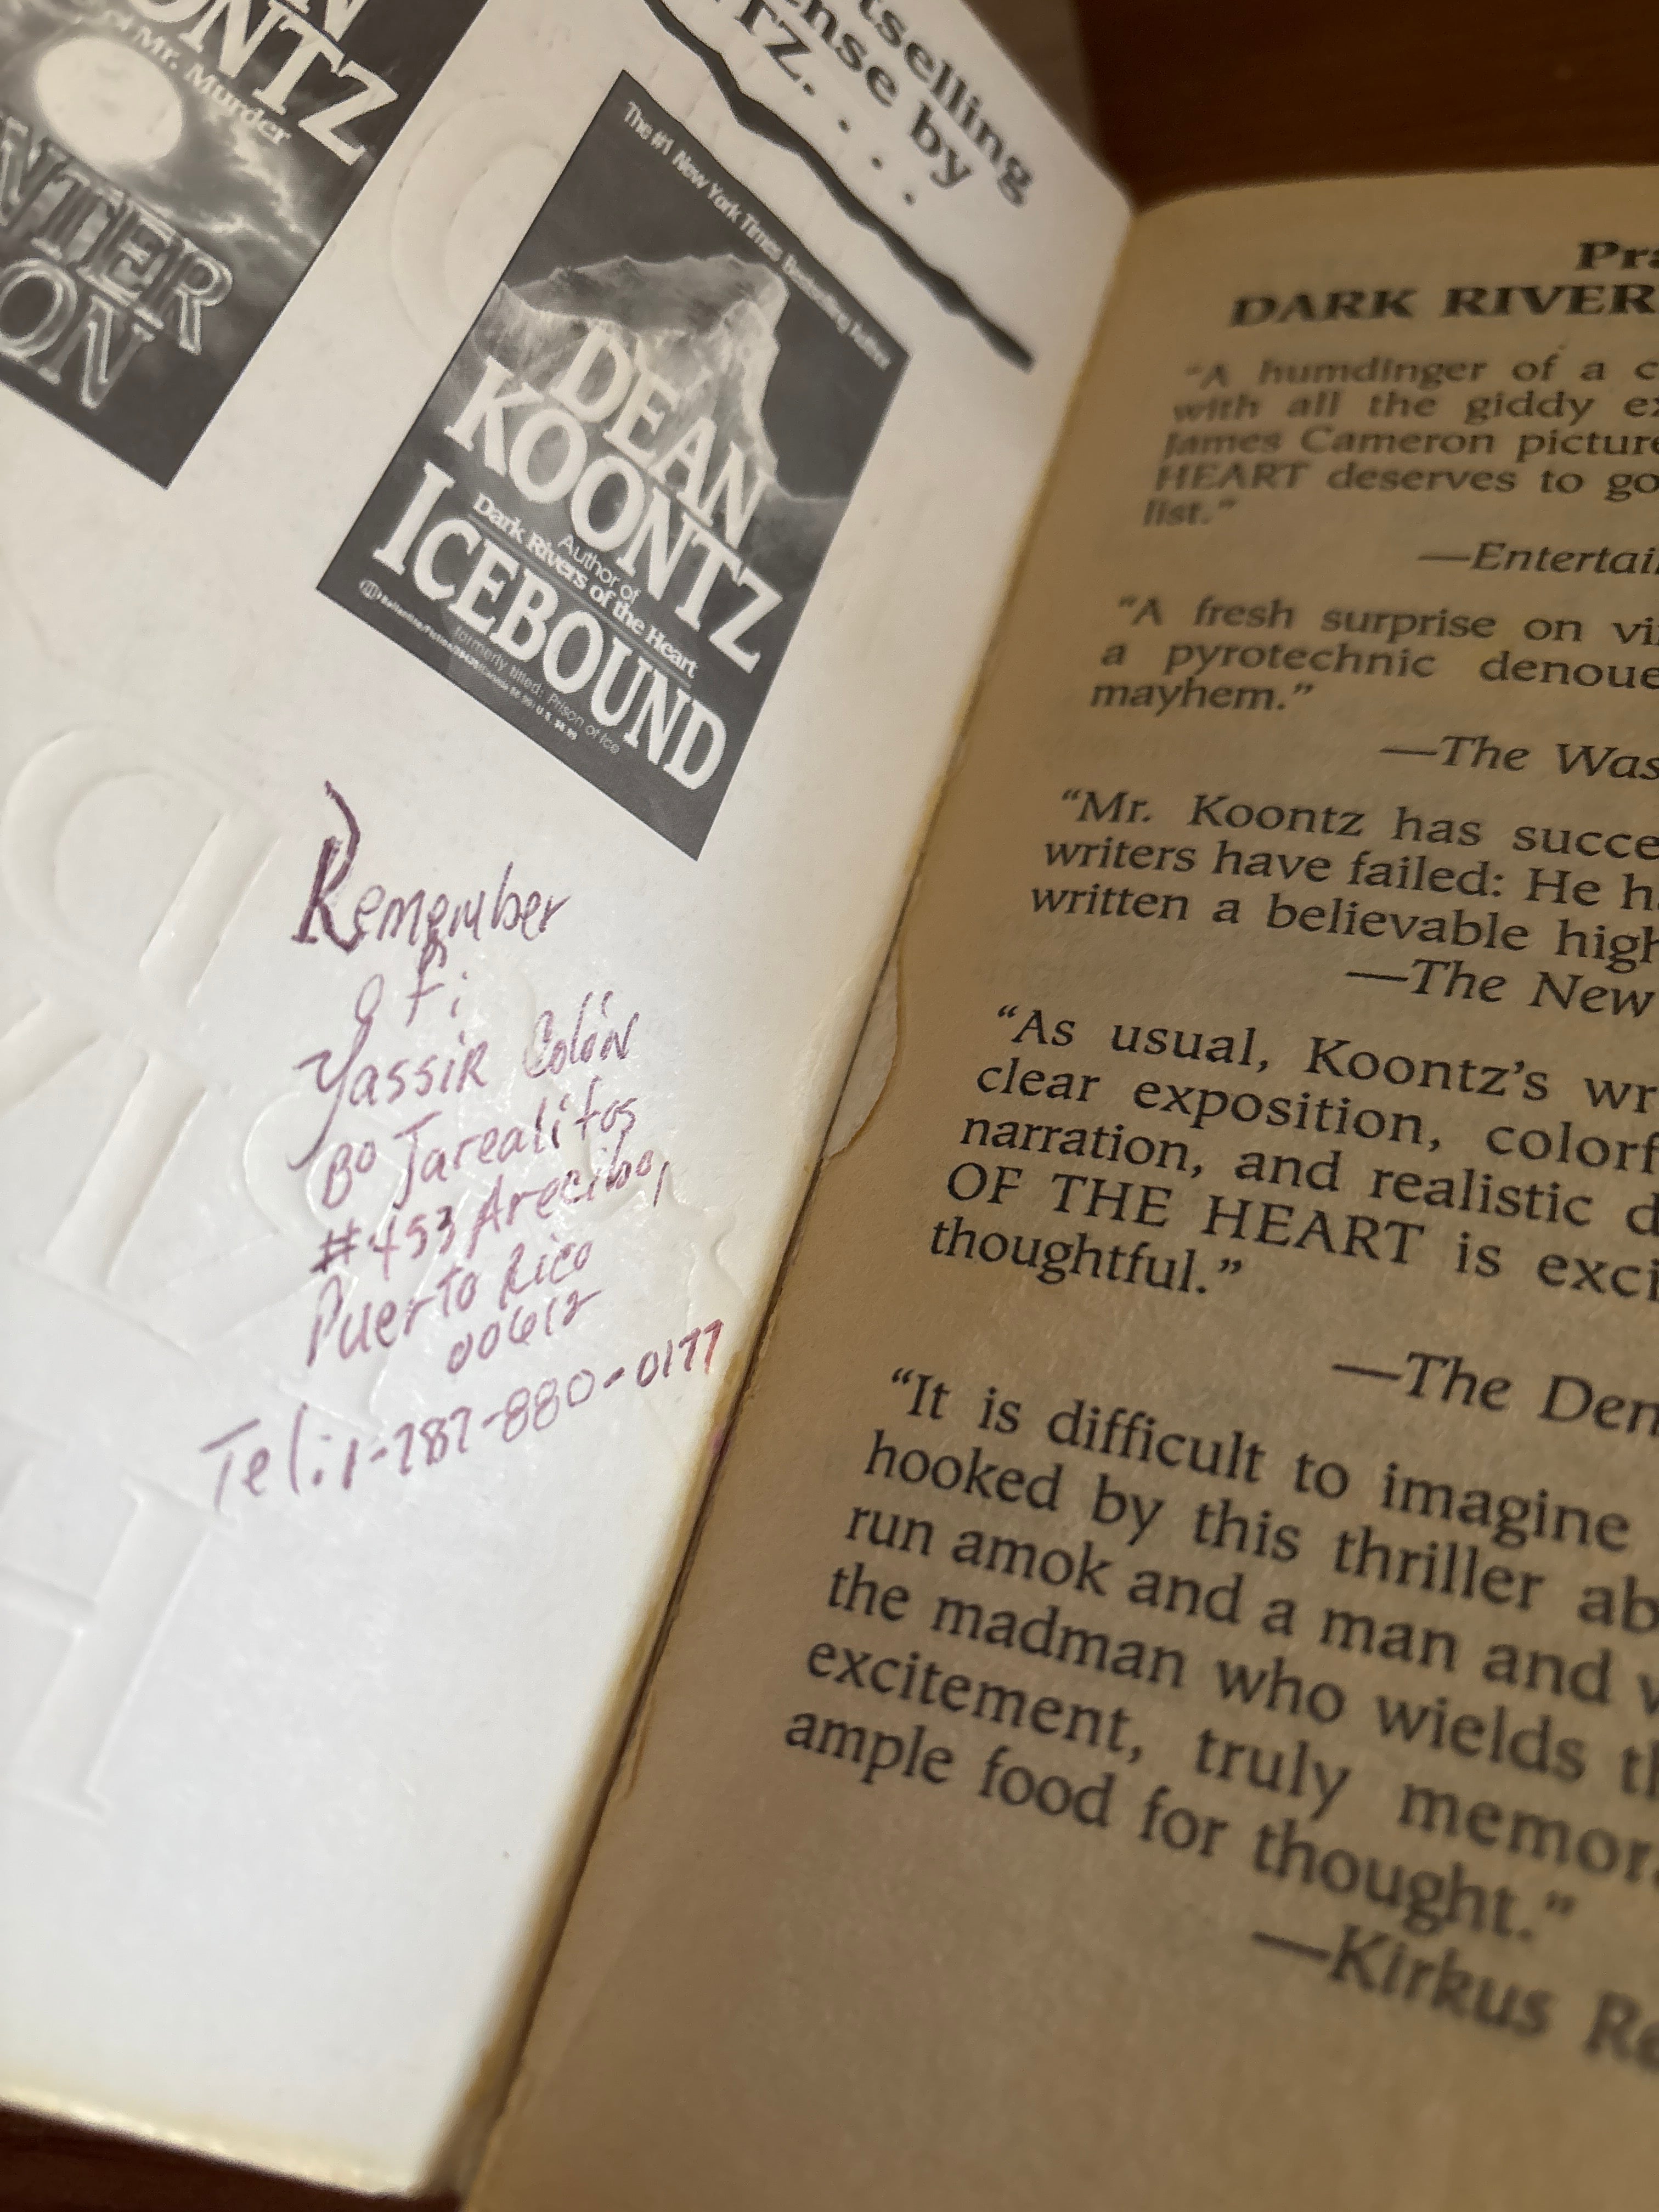 N
ONTZ
of Mr. Murder
NTER
ON
tselling
ense by
TZ. . . .
The #1 New York Times Bestselling Author
DEAN
KOONTZ
Author of
Dark Rivers of the Heart
ICEBOUND
formerly titled: Prison of Ice
Remember
of:
Yassir Colón
Bo Jarealitos
#453 Arecibo,
Puerto Rico
00612
Tel: 1-787-880-0177
Pra
DARK RIVER
"A humdinger of a c
with all the giddy ex
James Cameron picture
HEART deserves to go
list."
—Entertai
"A fresh surprise on vi
a pyrotechnic denoue
mayhem."
—The Was
"Mr. Koontz has succe
writers have failed: He h
written a believable high
—The New
"As usual, Koontz's wr
clear exposition, colorf
narration, and realistic d
OF THE HEART is exci
thoughtful."
—The Den
"It is difficult to imagine
hooked by this thriller ab
run amok and a man and w
the madman who wields th
excitement, truly memora
ample food for thought."
—Kirkus Re